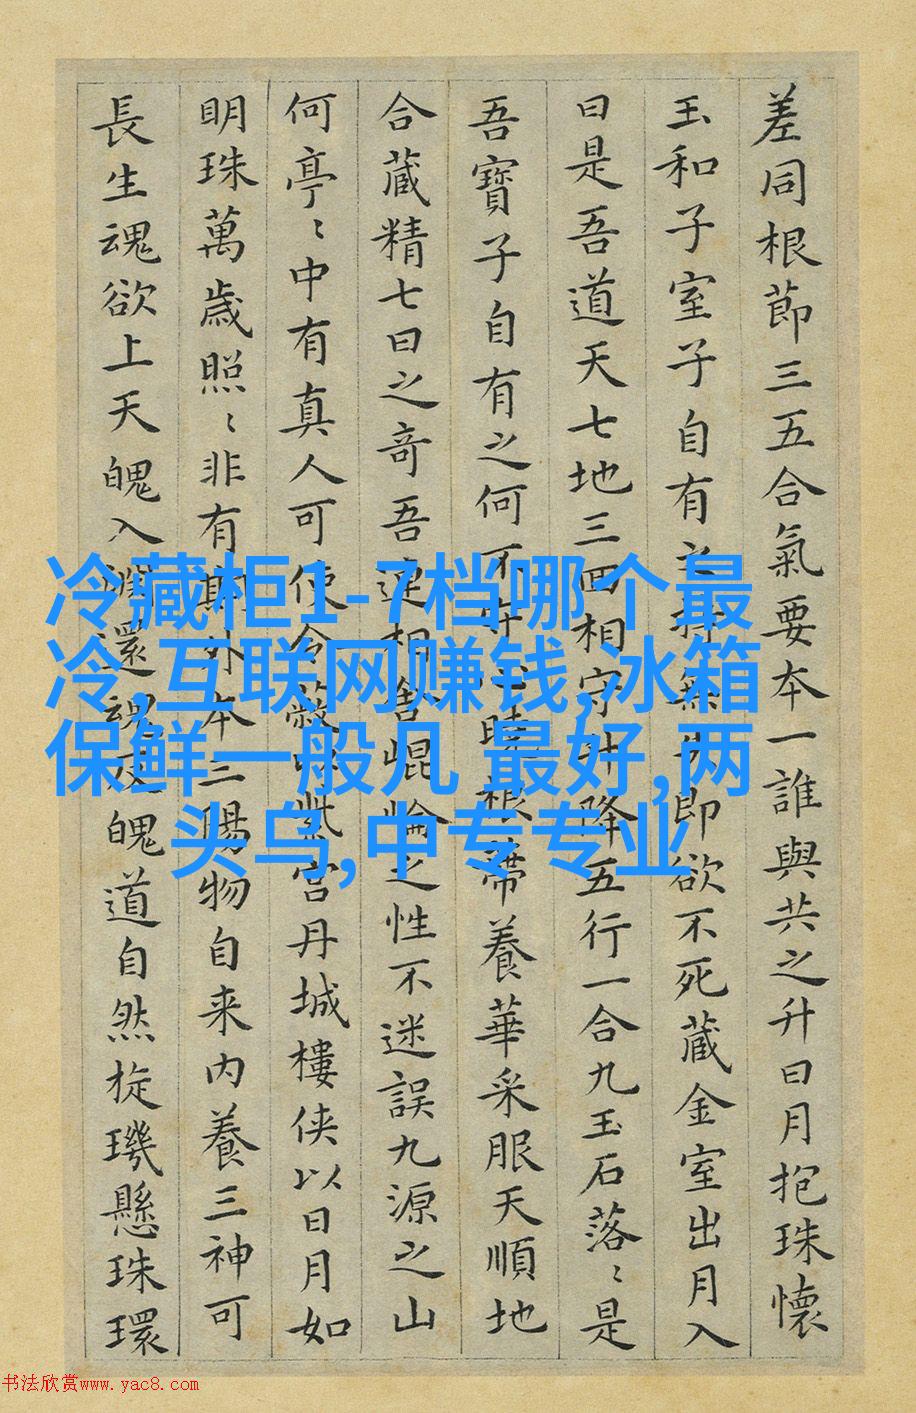 差同根節三五合氣要本一誰與共之升日月抱珠懷
玉和子室子自有之持無失即欲不死藏金室出月入
日是吾道天七地三回相守升降五行一合九玉石落〻是
吾寶子自有之何不守心曉根蒂養華采服天順地
合藏精七日之奇吾連相舍崐崘之性不迷誤九源之山
何亭〻中有真人可使令蔽紫宮丹城樓侠以日月如
明珠萬歲照〻非有期外本三陽物自来内養三神可
長生魂欲上天魄入淵還魂反魄道自然旋璣懸珠環
冷藏柜1-7档哪个最
冷,互联网赚钱,冰箱
保鲜一般几 最好,两
头乌,中专专业
书法欣赏www.yac8.com